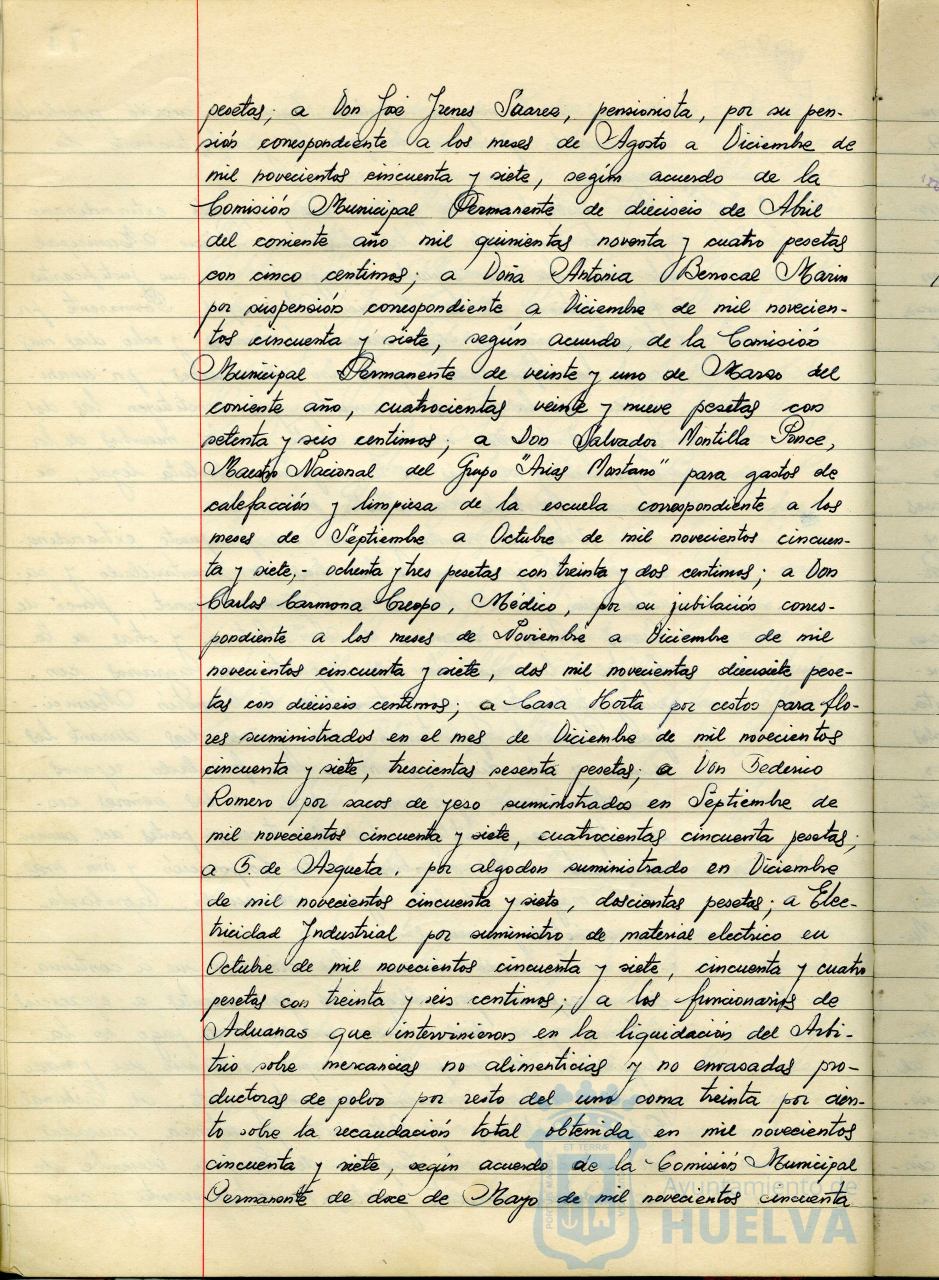 pesetas; a Don José Jrenes Suarez, pensionista, por su pen-
sión correspondiente a los meses de Agosto a Diciembre de
mil novecientos cincuenta y siete, según acuerdo de la
Comisión Municipal Permanente de dieciseis de Abril
del corriente año mil quinientas noventa y cuatro pesetas
con cinco centimos; a Doña Antonia Berrocal Marin
por suspensión correspondiente a Diciembre de mil novecien-
tos cincuenta y siete, según acuerdo de la Comisión
Municipal Permanente de veinte y uno de Marzo del
corriente año, cuatrocientas veinte y nueve pesetas con
setenta y seis centimos; a Don Salvador Montilla Ponce,
Maestro Nacional del Grupo "Arias Montano" para gastos de
calefacción y limpieza de la escuela correspondiente a los
meses de Septiembre a Octubre de mil novecientos cincuen-
ta y siete,- ochenta y tres pesetas con treinta y dos centimos; a Don
Carlos Carmona Crespo, Médico, por su jubilación corres-
pondiente a los meses de Noviembre a Diciembre de mil
novecientos cincuenta y siete, dos mil novecientas diecisiete pese-
tas con dieciseis centimos; a Casa Horta por cestos para flo-
res suministrados en el mes de Diciembre de mil novecientos
cincuenta y siete, trescientas sesenta pesetas; a Don Federico
Romero por sacos de yeso suministrados en Septiembre de
mil novecientos cincuenta y siete, cuatrocientas cincuenta pesetas;
a F. de Azqueta, por algodon suministrado en Diciembre
de mil novecientos cincuenta y siete, doscientas pesetas; a Elec-
tricidad Industrial por suministro de material electrico en
Octubre de mil novecientos cincuenta y siete, cincuenta y cuatro
pesetas con treinta y seis centimos; a los funcionarios de
Aduanas que intervinieron en la liquidación del Arbi-
trio sobre mercancias no alimenticias y no envasadas pro-
ductoras de polvo por resto del uno coma treinta por cien-
to sobre la recaudación total obtenida en mil novecientos
cincuenta y siete, según acuerdo de la Comisión Municipal
Permanente de doce de Mayo de mil novecientos cincuenta
Ayuntamiento de
HUELVA